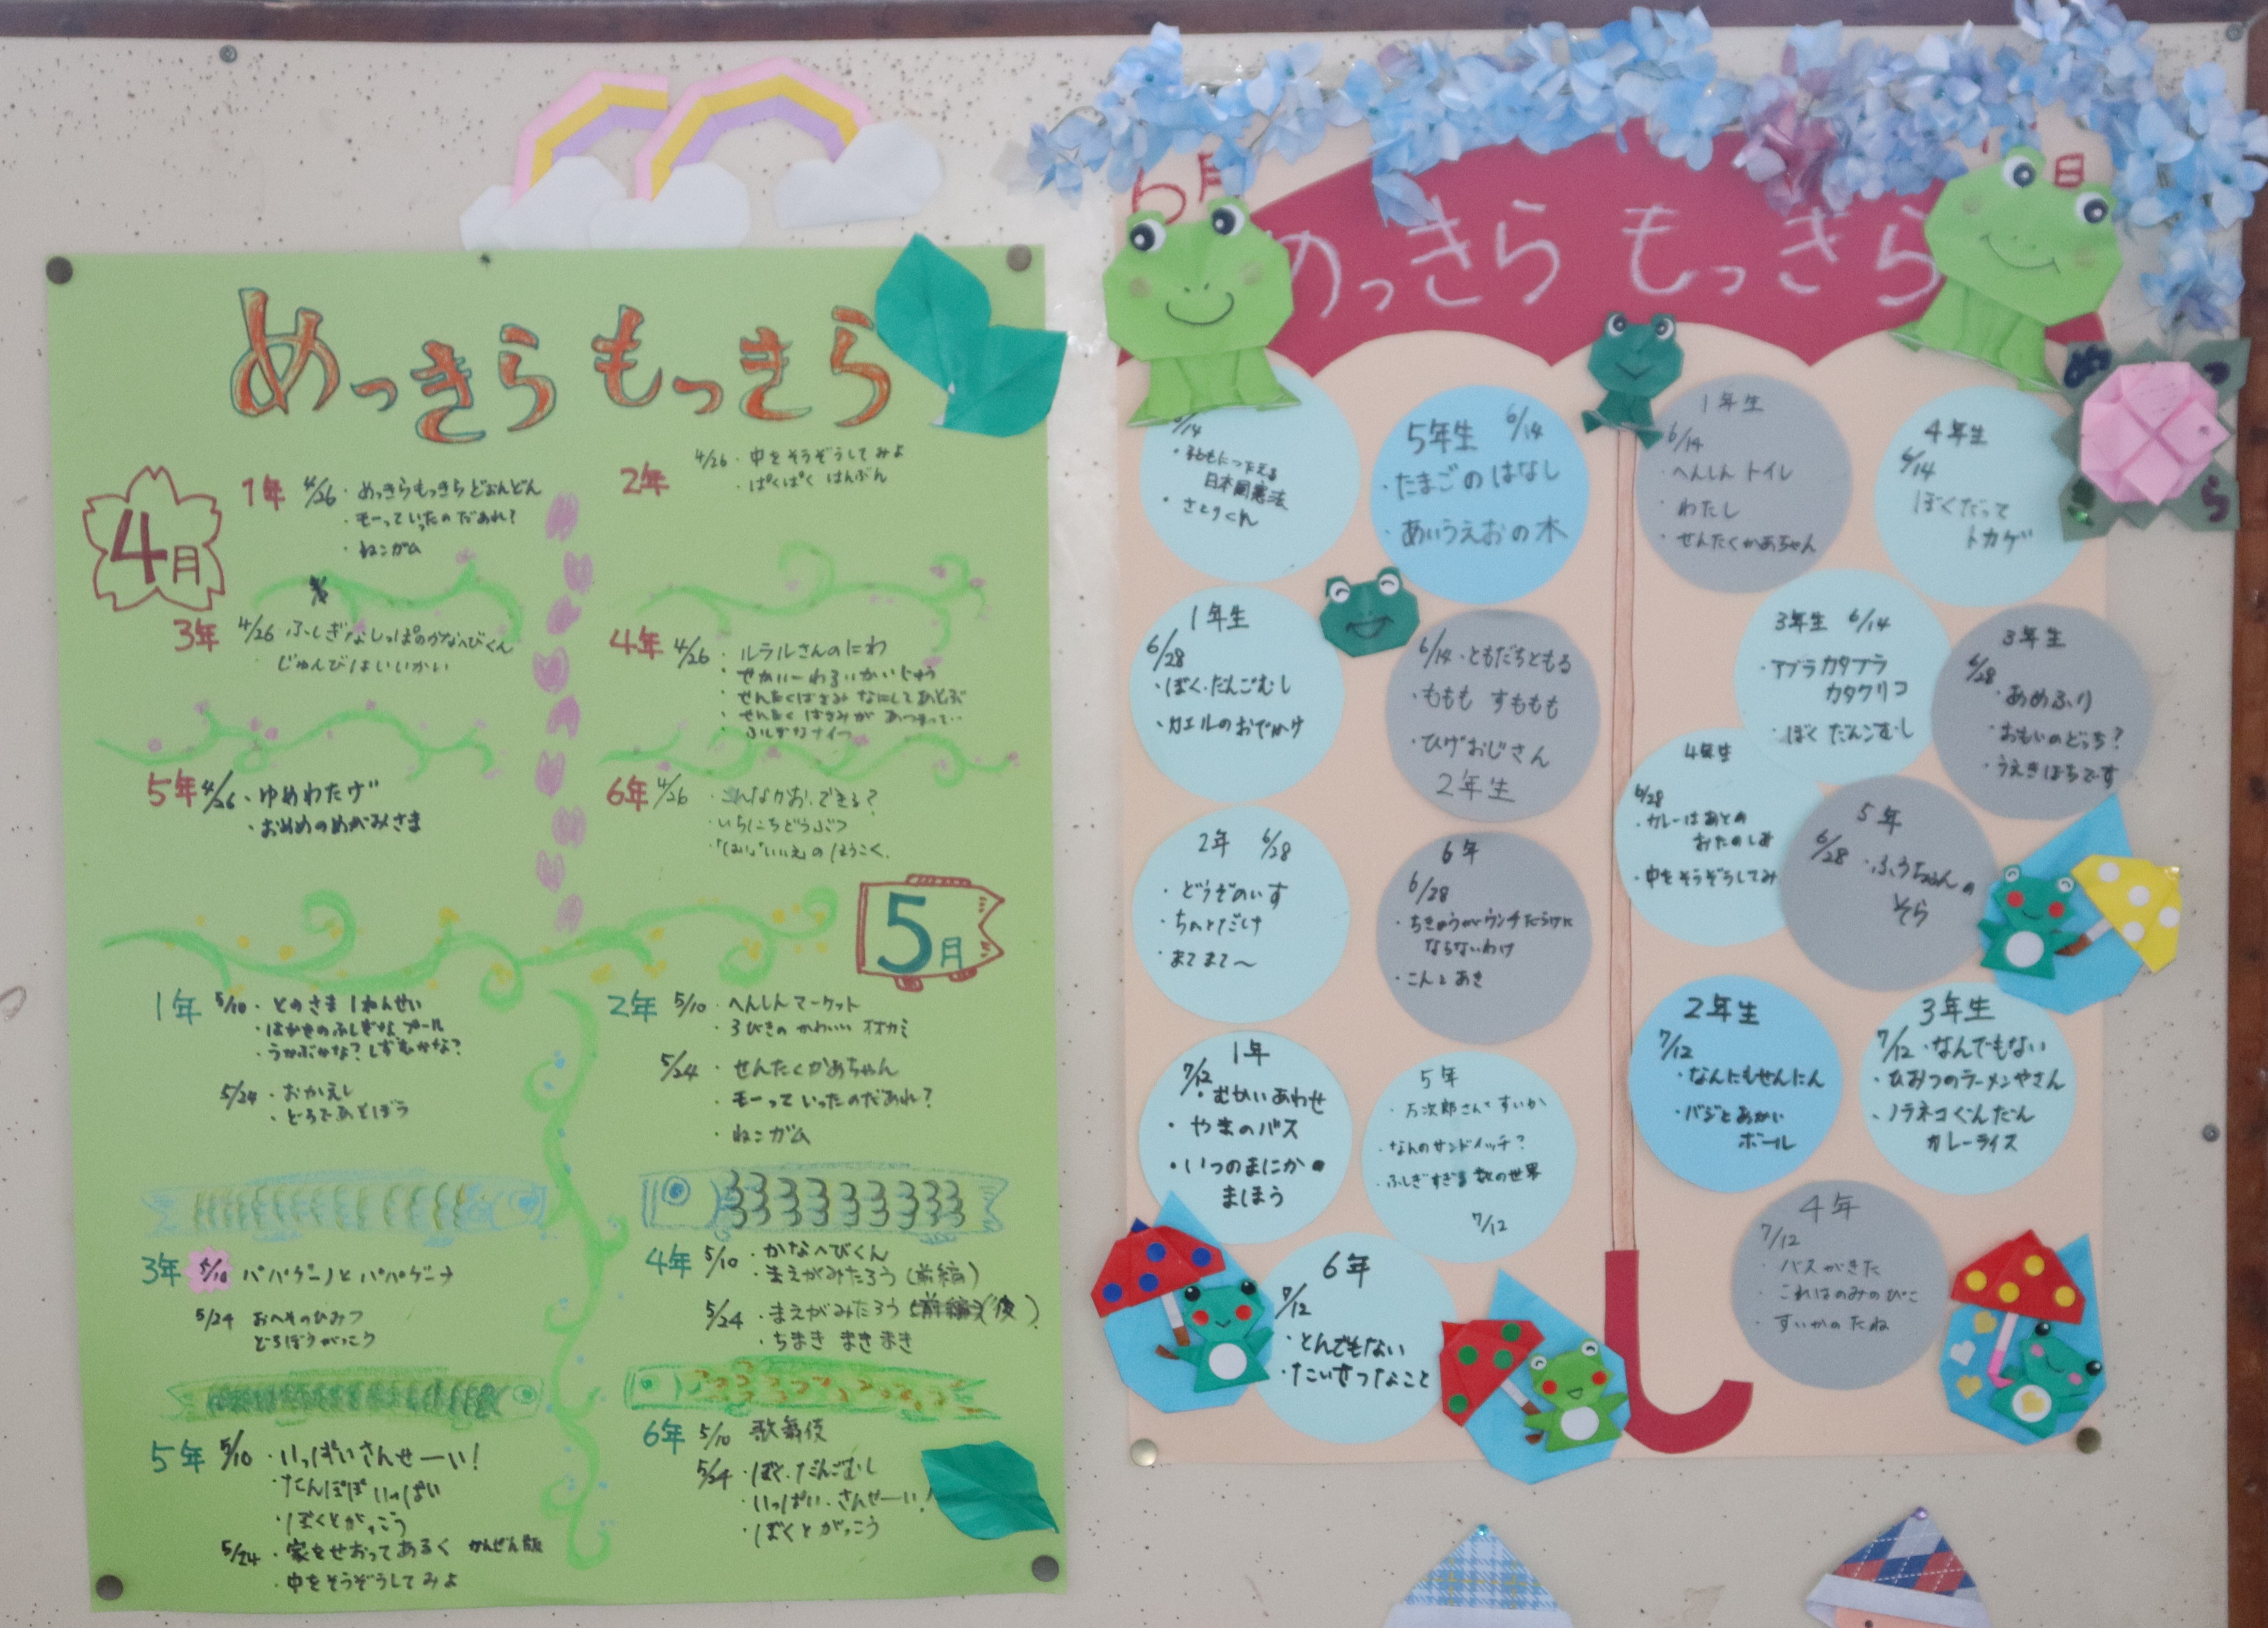 めっきら もっきら
4月
1年 4/26・めっきらもっきらどおんどん
・モーっていったのだあれ?
・ねこガム
2年 4/26・中をそうぞうしてみよ
・ぱくぱく はんぶん
3年 4/26 ふしぎなしっぽのかなへびくん
じゅんびはいいかい
4年 4/26・ルラルさんのにわ
・せかいーわるいかいじゅう
・せんたくばさみ なにしてあそぶ
・せんたくばさみが あつまって‥
5年 4/26・ゆめわたげ
・おめめのめがみさま
6年 4/26・こんなかお、できる?
・いちにちどうぶつ
・「はい」「いいえ」のほうこく
5月
1年 5/10・とのさま1ねんせい
・はかせのふしぎな プール
・うかぶかな?しずむかな?
5/24・おかえし
・どろであそぼう
2年 5/10・へんしんマーケット
・3びきの かわいい オオカミ
5/24・せんたくかあちゃん
・モーっていったのだあれ?
・ねこガム
3年 5/10 パパゲーノとパパゲーナ
5/24 おへそのひみつ
どろぼうがっこう
4年 5/10・かなへびくん
・まえがみたろう(前編)
5/24・まえがみたろう(後)
・ちまき まき まき
5年 5/10・いっぱいさんせーい!
・たんぽぽ いっぱい
・ぼくとがっこう
5/24・家をせおってあるく かんぜん版
・中をそうぞうしてみよ
6年 5/10 歌舞伎
5/24・ぼく.だんごむし
・いっぱい.さんせーい!
・ぼくとがっこう
6月
めっきら もっきら
6/14
・子どもにつたえる
日本国憲法
・さとりくん
5年生 6/14
・たまごのはなし
・あいうえおの木
1年生
6/14
・へんしんトイレ
・わたし
・せんたくかあちゃん
4年生
6/14
ぼくだって
トカゲ
1年生
6/28
・ぼく.だんごむし
・カエルのおでかけ
6/14・ともだちともる
・ももも すももも
・ひげおじさん
2年生
3年生 6/14
・アブラカタブラ
カタクリコ
・ぼく だんごむし
3年生
6/28
・あめふり
・おもいのどっち?
・うえきばちです
2年 6/28
・どうぞのいす
・ちょっとだけ
・まてまて~
6年
6/28
・ちきゅうがウンチだらけに
ならないわけ
・こんとあき
4年生
6/28
・カレーはあとの
おたのしみ
・中をそうぞうしてみ
5年
6/28・ふうちゃんの
そら
1年
7/12
・むかいあわせ
・やまのバス
・いつのまにかの
まほう
5年
・万次郎さんとすいか
・なんのサンドイッチ?
・ふしぎすぎる数の世界
7/12
2年生
7/12
・なんにもせんにん
・バジとあかい
ボール
3年生
7/12・なんでもない
・ひみつのラーメンやさん
・ノラネコぐんだん
カレーライス
6年
7/12
・とんでもない
・たいせつなこと
4年
7/12
・バスがきた
・これはのみのぴこ
・すいかのたね